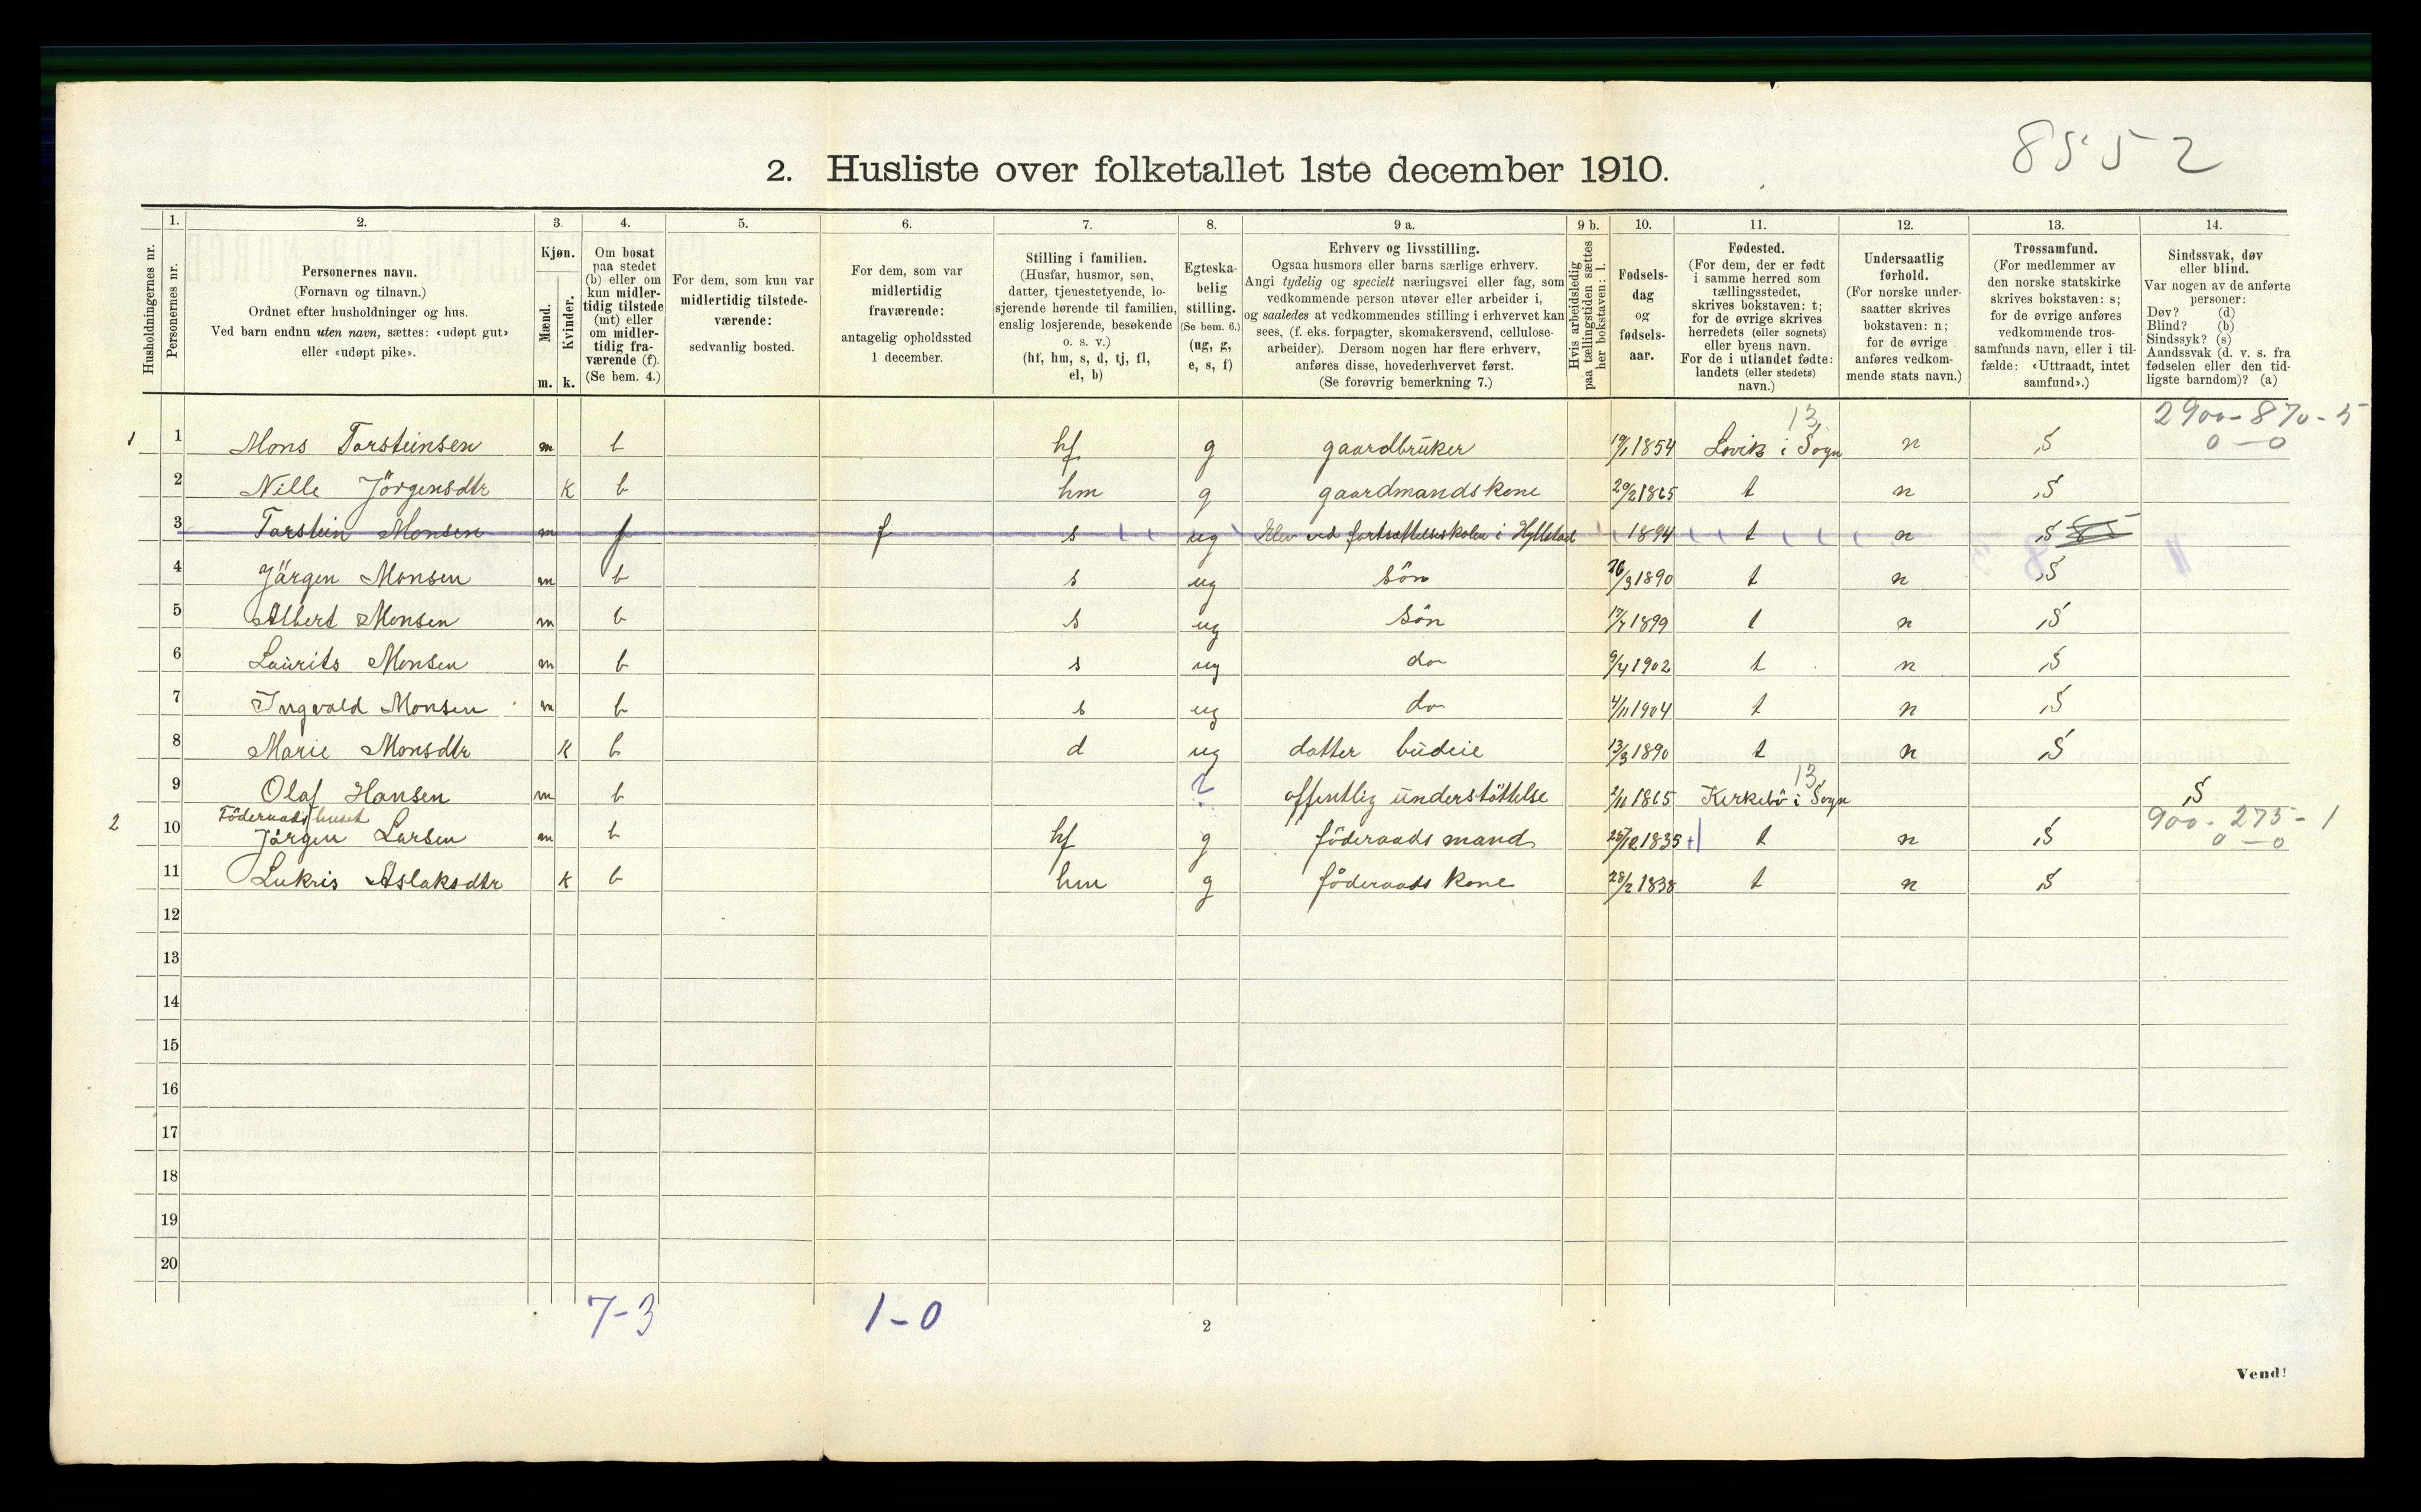 8552
2. Husliste over folketallet 1ste december 1910.
Husholdningernes nr.
1.
Personernes nr.
2.
Personernes navn.
(Fornavn og tilnavn.)
Ordnet efter husholdninger og hus.
Ved barn endnu uten navn, sættes: «udøpt gut»
eller «udøpt pike».
3.
Kjøn.
Mænd.
Kvinder.
m. k.
4.
Om bosat
paa stedet
(b) eller om
kun midler-
tidig tilstede
(mt) eller
om midler-
tidig fra-
værende (f).
(Se bem. 4.)
5.
For dem, som kun var
midlertidig tilstede-
værende:
sedvanlig bosted.
6.
For dem, som var
midlertidig
fraværende:
antagelig opholdssted
1 december.
7.
Stilling i familien.
(Husfar, husmor, søn,
datter, tjenestetyende, lo-
sjerende hørende til familien,
enslig losjerende, besøkende
o. s. v.)
(hf, hm, s, d, tj, fl,
el, b)
8.
Egteska-
belig
stilling.
(Se bem. 6.)
(ug, g,
e, s, f)
9 a.
Erhverv og livsstilling.
Ogsaa husmors eller barns særlige erhverv.
Angi tydelig og specielt næringsvei eller fag, som
vedkommende person utøver eller arbeider i,
og saaledes at vedkommendes stilling i erhvervet kan
sees, (f. eks. forpagter, skomakersvend, cellulose-
arbeider). Dersom nogen har flere erhverv,
anføres disse, hovederhvervet først.
(Se forøvrig bemerkning 7.)
9 b.
Hvis arbeidsledig
paa tællingstiden sættes
her bokstaven: l.
10.
Fødsels-
dag
og
fødsels-
aar.
11.
Fødested.
(For dem, der er født
i samme herred som
tællingsstedet,
skrives bokstaven: t;
for de øvrige skrives
herredets (eller sognets)
eller byens navn.
For de i utlandet fødte:
landets (eller stedets)
navn.)
12.
Undersaatlig
forhold.
(For norske under-
saatter skrives
bokstaven: n;
for de øvrige
anføres vedkom-
mende stats navn.)
13.
Trossamfund.
(For medlemmer av
den norske statskirke
skrives bokstaven: s;
for de øvrige anføres
vedkommende tros-
samfunds navn, eller i til-
fælde: «Uttraadt, intet
samfund».)
14.
Sindssvak, døv
eller blind.
Var nogen av de anførte
personer:
Døv? (d)
Blind? (b)
Sindssyk? (s)
Aandssvak (d. v. s. fra
fødselen eller den tid-
ligste barndom)? (a)
13 2900-870-5
1 1 Mons Torsteinsen m b hf g gaardbruker 19/1 1854 Lavik i Sogn n S 0-0
2 Nille Jörgensdtr K b hm g gaardmandskone 20/2 1865 t n S
3 Torstein Monsen m f f s ug Elev ved fortsættelsesskolen i Hyllestad 1894 t n S
4 Jörgen Monsen m b s ug Sön 26/3 1890 t n S
5 Albert Monsen m b s ug Sön 17/7 1899 t n S
6 Laurits Monsen m b s ug do 9/4 1902 t n S
7 Ingvald Monsen m b s ug do 4/11 1904 t n S
8 Marie Monsdtr K b d ug datter budeie 13/3 1890 t n S
13
9 Olaf Hansen m b ? offentlig understöttelse 2/11 1865 Kirkebö i Sogn S
Föderaadshuset 900-275-1
2 10 Jörgen Larsen m b hf g föderaads mand 25/12 1835 + t n S 0-0
11 Lukris Aslaksdtr K b hm g föderaads kone 28/2 1838 t n S
12
13
14
15
16
17
18
19
20
7-3 1-0
2
Vend!